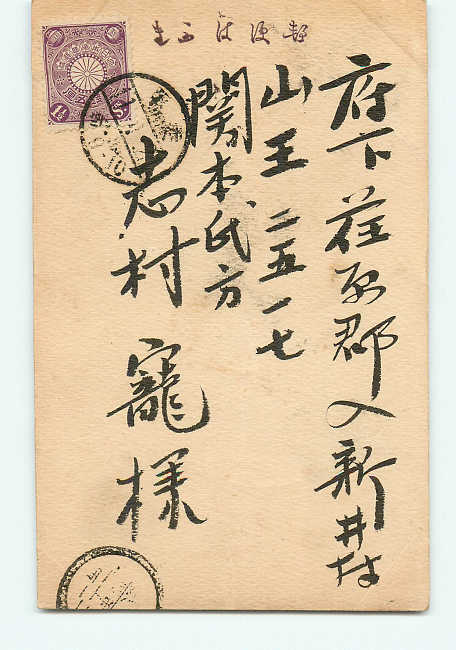 郵便はかき
府下荏原郡入新井村
山王二五一七
関本氏方
志村寵様
1½